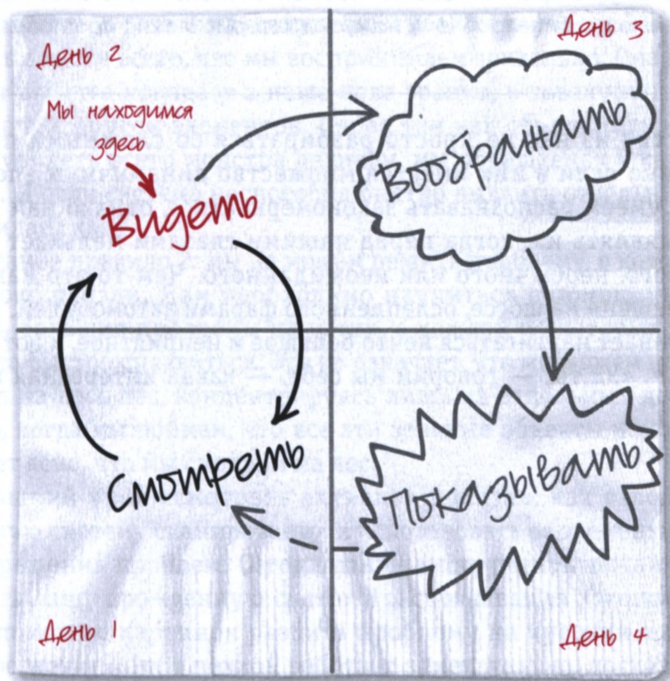 День 2
День 3
Мы находимся
здесь
Видеть
Воображать
Смотреть
Показывать
День 1
День 4